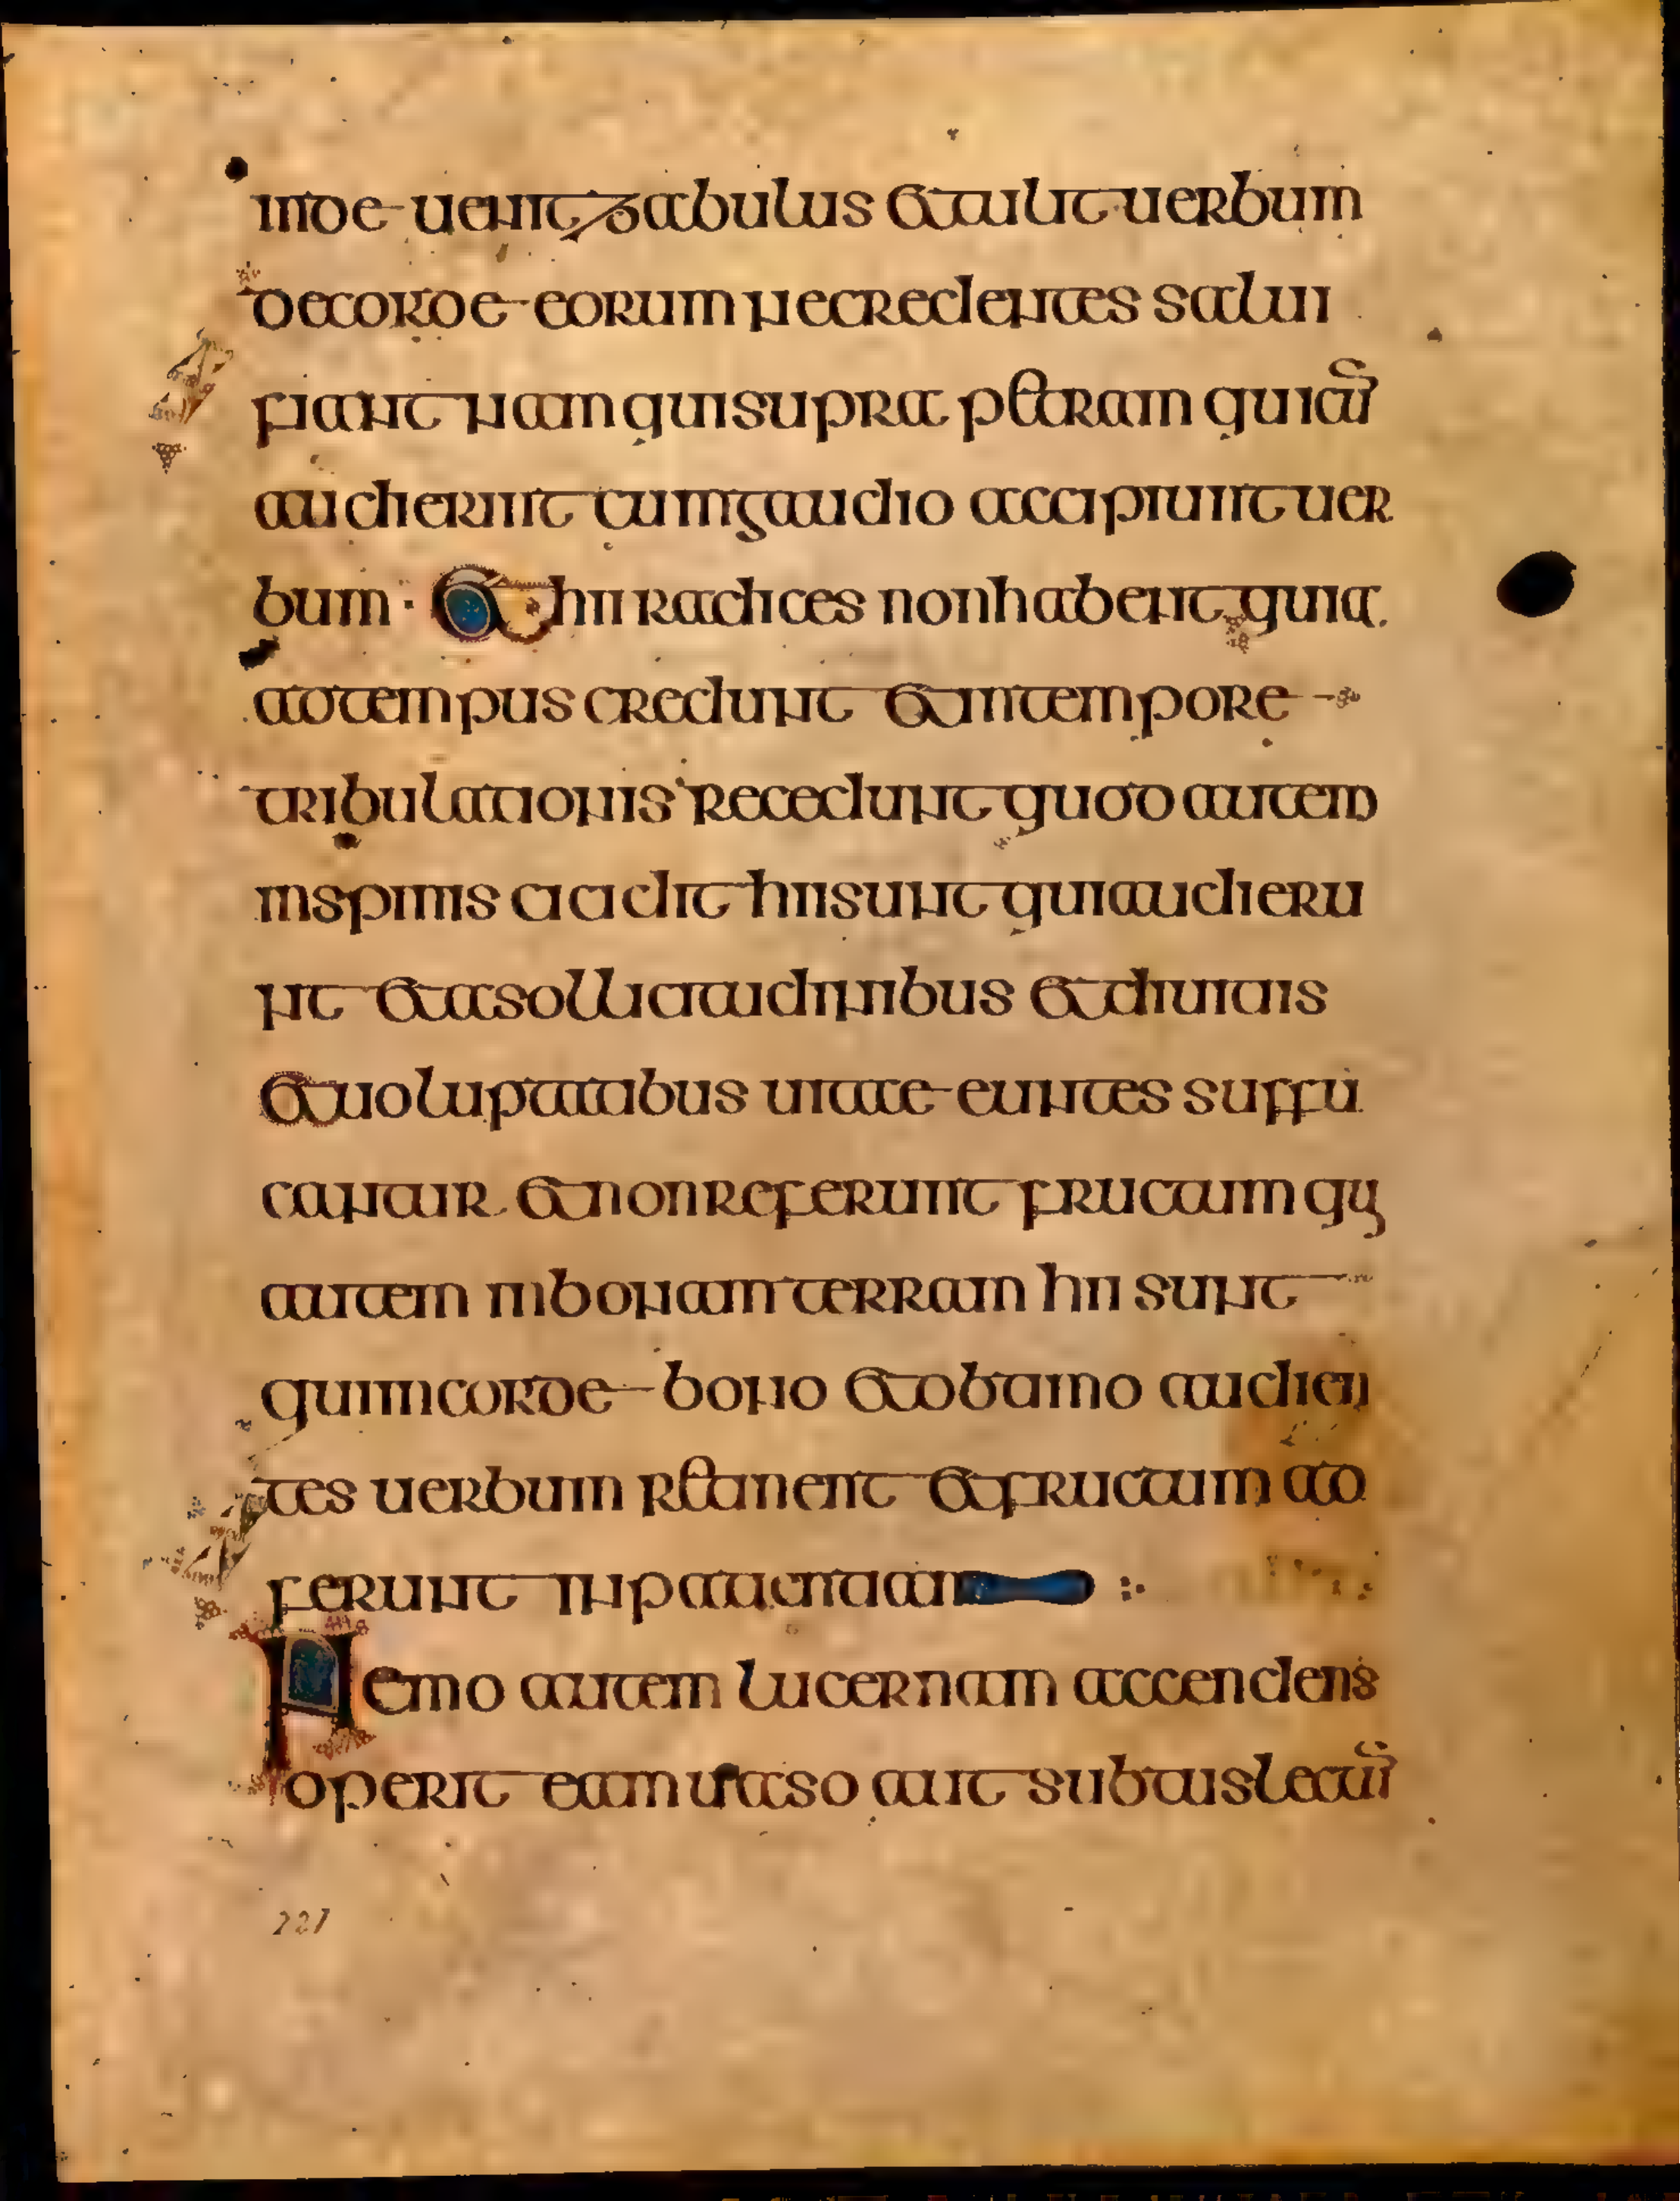 inde uenit zabulus et tulit uerbum
de corde eorum ne credentes salui
fiant nam qui supra petram qui cū
audierint cum gaudio accipiunt uer
bum · Et hii radices non habent quia
ad tempus credunt et in tempore
tribulationis recedunt quod autem
in spinis cicidit hii sunt qui audieru
nt et a sollicitudinibus et diuitiis
et uoluptatibus uitae euntes suffu
cantur et non referunt fructum qđ
autem in bonam terram hii sunt
qui in corde bono et obtimo audien
tes uerbum retinent et fructum ad
ferunt in patientiam :·
Nemo autem lucernam accendens
operit eam uaso aut subtus lectū
221